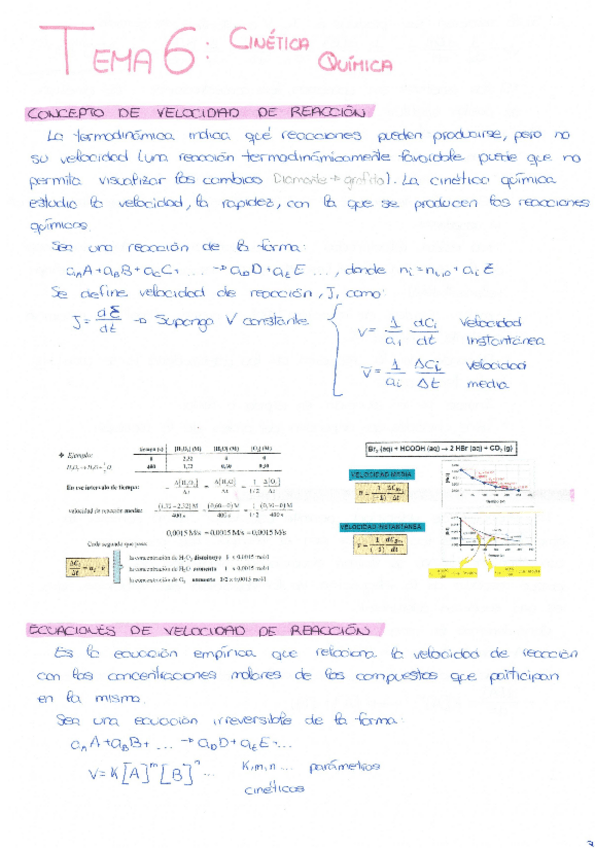 TEMA 6: CINÉTICA QUÍMICA
CONCEPTO DE VELOCIDAD DE REACCIÓN
La termodinámica indica qué reacciones pueden producirse, pero no
su velocidad (una reacción termodinámicamente favorable puede que no
permita visualizar los cambios Diamante → grafito). La cinética química
estudia la velocidad, la rapidez, con la que se producen las reacciones
químicas.
Sea una reacción de la forma:
a_A A + a_B B + a_C C + ... → a_D D + a_E E ..., donde n_i = n_i,0 + a_i ξ
Se define velocidad de reacción, J, como:
J = dξ/dt → Suponga V constante
V = 1/a_i dC_i/dt velocidad instantánea
V̄ = 1/a_i ΔC_i/Δt velocidad media
Ejemplo:
[H₂O₂] (M) [H₂O] (M) [O₂] (M)
0 2,32 0 0
400 1,72 0,60 0,30
En ese intervalo de tiempo: - Δ[H₂O₂]/Δt = Δ[H₂O]/Δt = 1/1/2 Δ[O₂]/Δt
velocidad de reacción media: - (1,72 - 2,32) M/400 s = (0,60 - 0) M/400 s = 1/1/2 (0,30 - 0) M/400 s
0,0015 M/s = 0,0015 M/s = 0,0015 M/s
Cada segundo que pasa:
la concentración de H₂O₂ disminuye 1 x 0,0015 mol/l
la concentración de H₂O aumenta 1 x 0,0015 mol/l
la concentración de O₂ aumenta 1/2 x 0,0015 mol/l
Br₂ (aq) + HCOOH (aq) → 2 HBr (aq) + CO₂ (g)
VELOCIDAD MEDIA
VELOCIDAD INSTANTANEA
ECUACIONES DE VELOCIDAD DE REACCIÓN
Es la ecuación empírica que relaciona la velocidad de reacción
con las concentraciones molares de los compuestos que participan
en la misma.
Sea una ecuación irreversible de la forma:
a_A A + a_B B + ... → a_D D + a_E E + ...
V = K[A]^m [B]^n ... K, m, n ... parámetros
cinéticos